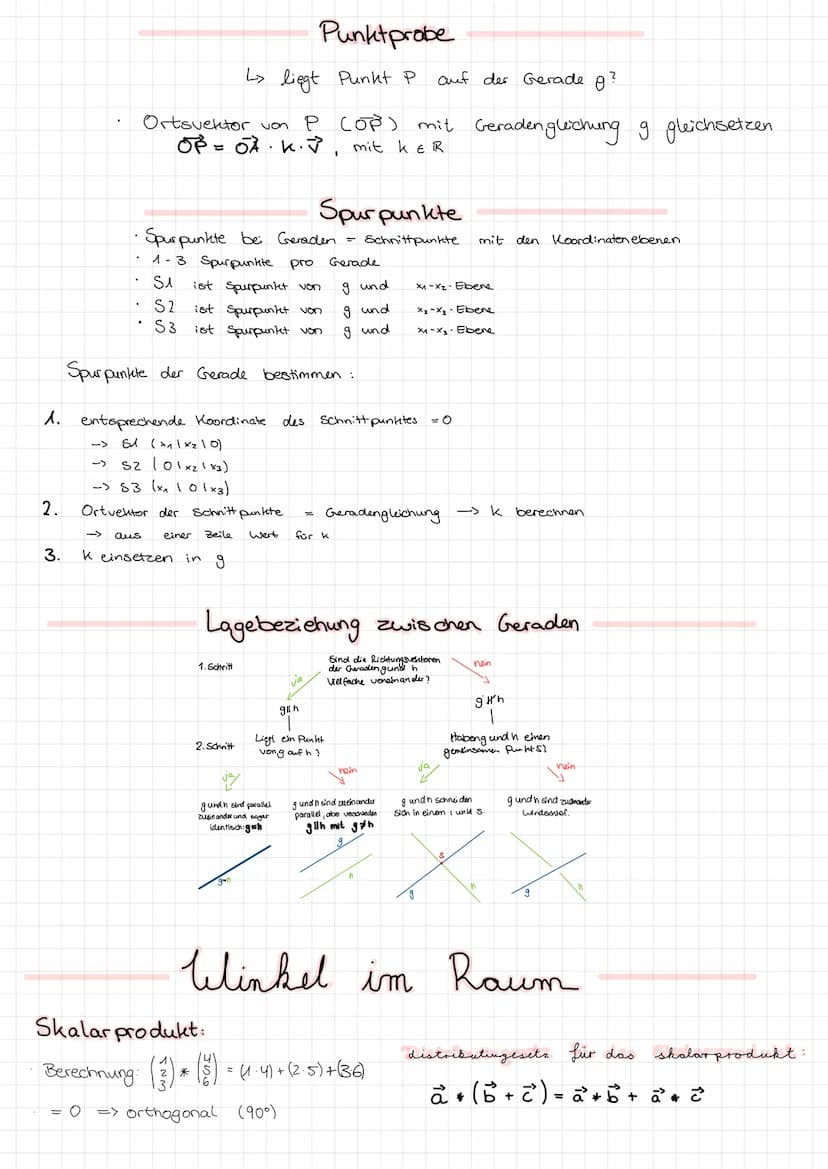 Punktprobe
↳ liegt Punkt P auf der Gerade g?
· Ortsvektor von P (OP⃗) mit Geradengleichung g gleichsetzen
OP⃗ = OA⃗ · k · v⃗, mit k ∈ ℝ
Spurpunkte
· Spurpunkte bei Geraden = Schnittpunkte mit den Koordinatenebenen
· 1-3 Spurpunkte pro Gerade
· S1 ist Spurpunkt von g und x₁-x₂-Ebene
· S2 ist Spurpunkt von g und x₂-x₃-Ebene
· S3 ist Spurpunkt von g und x₁-x₃-Ebene
Spurpunkte der Gerade bestimmen:
1. entsprechende Koordinate des Schnittpunktes = 0
-> S1 (x₁|x₂|0)
-> S2 (0|x₂|x₃)
-> S3 (x₁|0|x₃)
2. Ortvektor der Schnittpunkte = Geradengleichung -> k berechnen
-> aus einer Zeile Wert für k
3. k einsetzen in g
Lagebeziehung zwischen Geraden
1. Schritt
Sind die Richtungsvektoren
der Geraden g und h
Vielfache voneinander?
ja
nein
g∥h
g∦h
2. Schritt
Liegt ein Punkt
von g auf h?
Haben g und h einen
gemeinsamen Punkt S?
ja
nein
ja
nein
g und h sind parallel
zueinander und sogar
identisch: g=h
g und h sind zueinander
parallel, aber verschieden
g∥h mit g≠h
g und h schneiden
sich in einem Punkt S.
g und h sind zueinander
windschief.
g=h
g
h
S
g
h
g
h
Winkel im Raum
Skalarprodukt:
· Berechnung: (1 2 3) * (4 5 6) = (1·4)+(2·5)+(36)
· = 0 => orthogonal (90°)
Distributivgesetz für das Skalarprodukt:
a⃗ * (b⃗ + c⃗) = a⃗ * b⃗ + a⃗ * c⃗